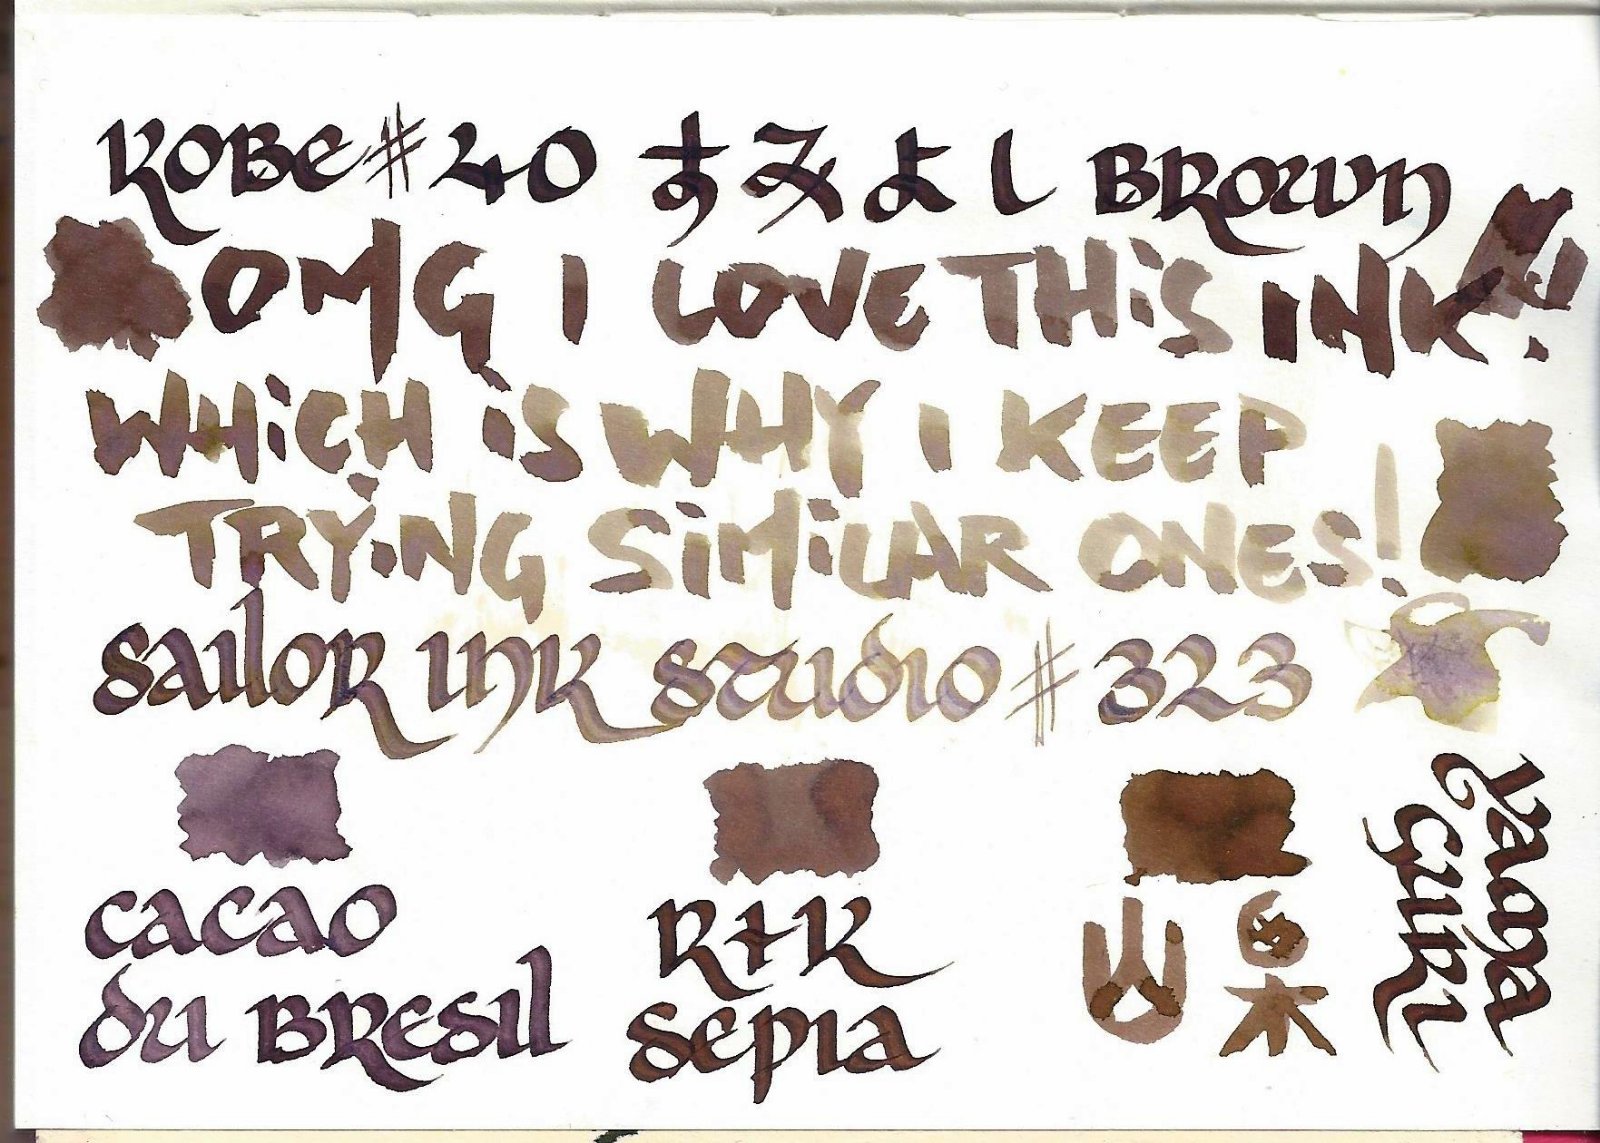 KOBE #40 すみよし BROWN
OMG I LOVE THIS INK!
WHICH IS WHY I KEEP
TRYING SIMILAR ONES!
SAILOR INK STUDIO #323
CACAO
DU BRESIL
R+K
SEPIA
山
栗
YAMA
GURI